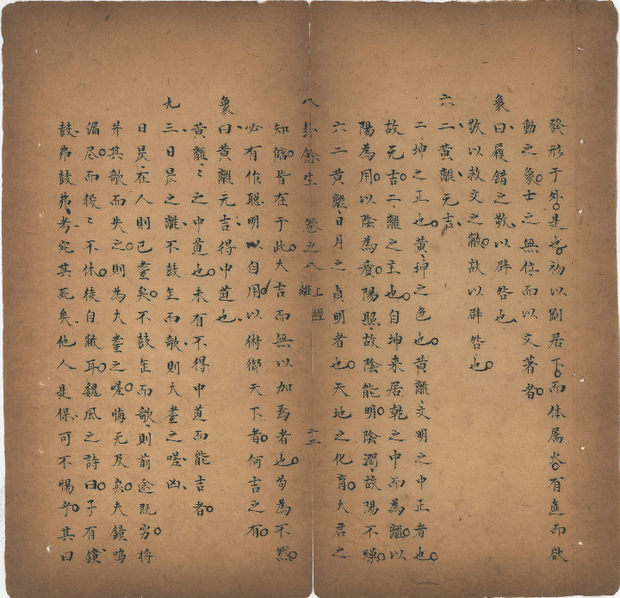 發形于外是也初以剛居下而体属炎有直而欲
動之象士之無位而以文著者
象曰履錯之敬以辟咎也
敬以救文之敝故以辟咎也
六二黃離元吉
二坤之正也黃坤之色也黃離文明之中正者也
故元吉二離之主也自坤來居乾之中而為離以
陽為用以陰為質陽照故陰能明陰濶故陽不燥
六二黃離日月之貞明者也天地之化育大君之
八卦餘生 卷之八 上經 離 二二
知臨皆在于此大吉而無以加焉者也苟為不黙
必有作聰明以自用以術御天下者何吉之有
象曰黃離元吉得中道也
黃離離之中道也未有不得中道而能吉者
九三日昃之離不鼓缶而歌則大耋之嗟凶
日昃在人則已耋矣不鼓缶而歌則前途既穷将
并其歌而失之則為大耋之嗟悔无及矣夫鐘鳴
漏尽而彼彼不休徒自敝耳魏風之詩曰子有鐘
鼓弗鼓弗考宛其死矣他人是保可不惕乎其曰